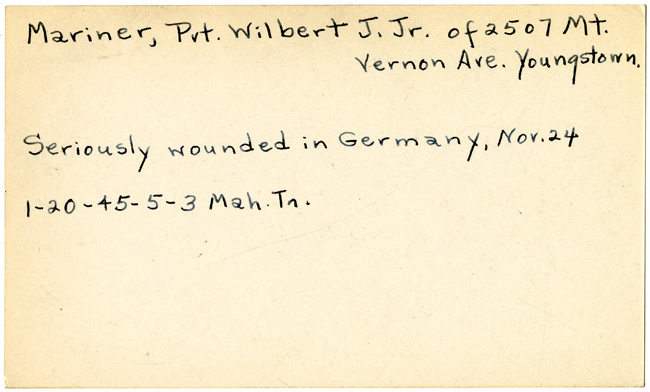 Mariner, Pvt. Wilbert J. Jr. of 2507 Mt.
Vernon Ave. Youngstown.
Seriously wounded in Germany, Nov. 24
1-20-45-5-3 Mah. Tn.